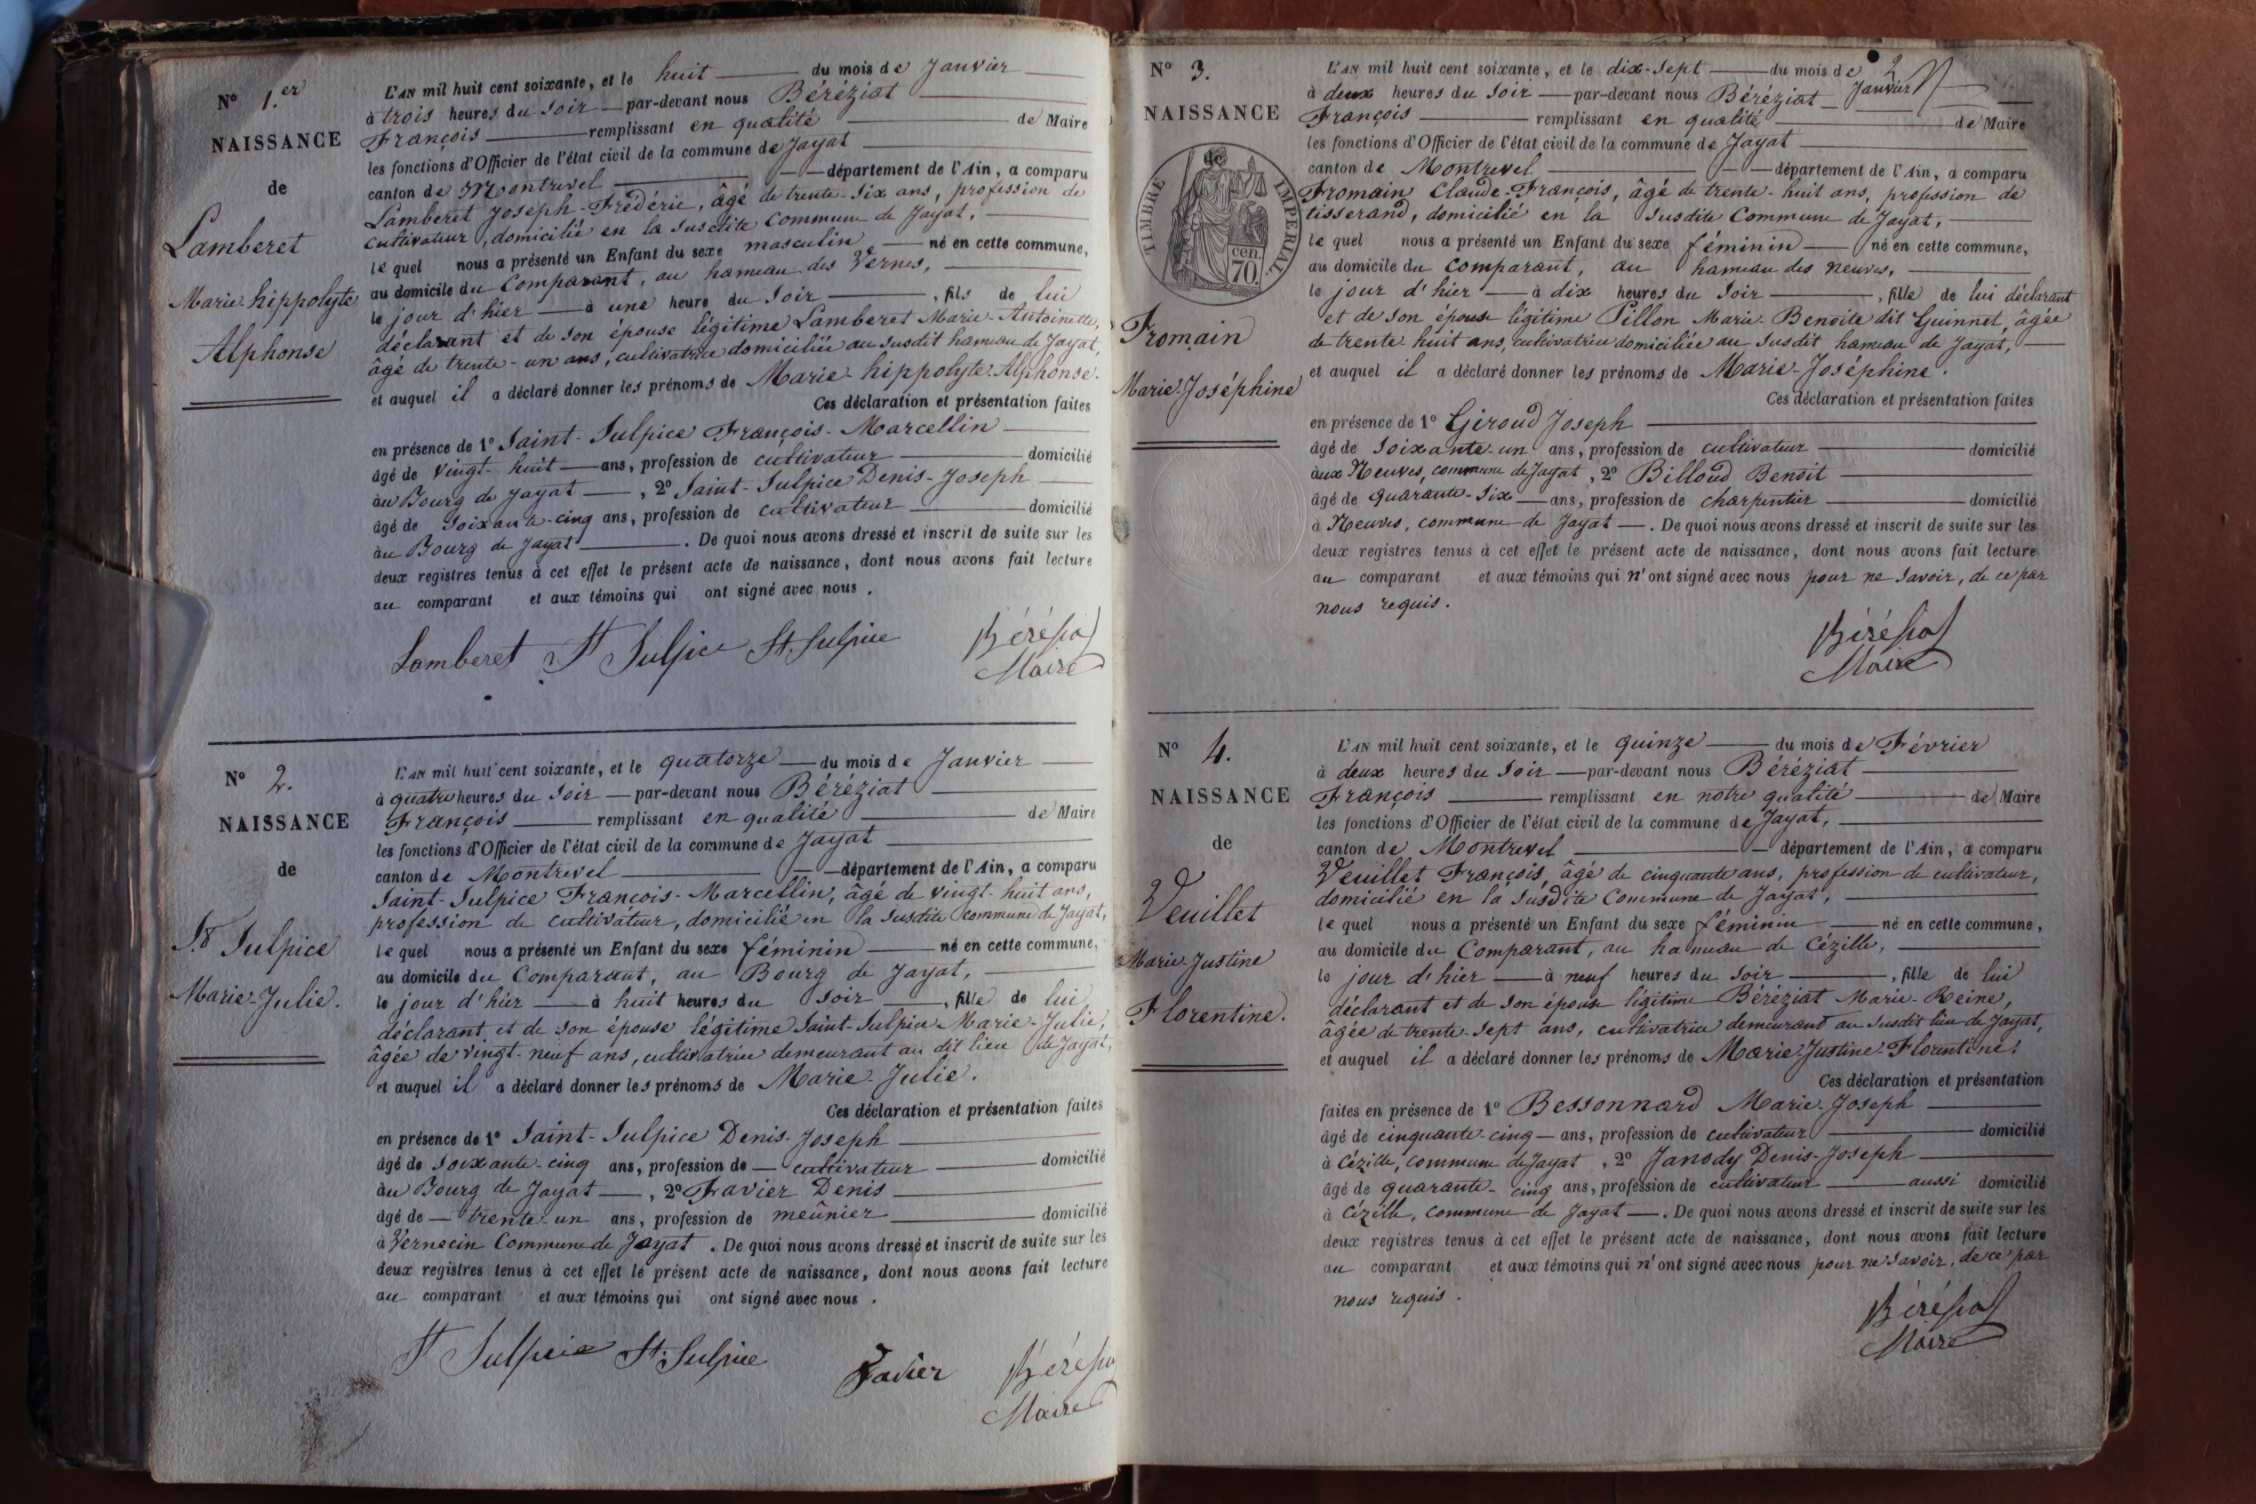 N° 1.er
NAISSANCE
de
Lamberet
Marie-hippolyte
Alphonse
L'AN mil huit cent soixante, et le huit du mois de Janvier
à trois heures du Soir par-devant nous Béréziat
François remplissant en qualité de Maire
les fonctions d'Officier de l'état civil de la commune de Jayat
canton de Montrevel département de l'Ain, a comparu
Lamberet Joseph-Frédéric, âgé de trente-six ans, profession de
cultivateur, domicilié en la susdite Commune de Jayat,
le quel nous a présenté un Enfant du sexe masculin né en cette commune,
au domicile du Comparant, au hameau des Vernes,
le jour d'hier à une heure du Soir, fils de lui
déclarant et de son épouse légitime Lamberet Marie-Antoinette,
âgé de trente-un ans, cultivatrice domiciliée au susdit hameau de Jayat,
et auquel il a déclaré donner les prénoms de Marie-hippolyte-Alphonse.
Ces déclaration et présentation faites
en présence de 1° Saint-Sulpice François-Marcellin
âgé de vingt-huit ans, profession de cultivateur domicilié
au Bourg de Jayat, 2° Saint-Sulpice Denis-Joseph
âgé de soixante-cinq ans, profession de cultivateur domicilié
au Bourg de Jayat. De quoi nous avons dressé et inscrit de suite sur les
deux registres tenus à cet effet le présent acte de naissance, dont nous avons fait lecture
au comparant et aux témoins qui ont signé avec nous.
Lamberet St Sulpice St. Sulpice Béréziat
Maire
N° 2.
NAISSANCE
de
St Sulpice
Marie-Julie.
L'AN mil huit cent soixante, et le quatorze du mois de Janvier
à quatre heures du Soir par-devant nous Béréziat
François remplissant en qualité de Maire
les fonctions d'Officier de l'état civil de la commune de Jayat
canton de Montrevel département de l'Ain, a comparu
Saint-Sulpice François-Marcellin, âgé de vingt-huit ans,
profession de cultivateur, domicilié en la susdite commune de Jayat,
le quel nous a présenté un Enfant du sexe féminin né en cette commune,
au domicile du Comparant, au Bourg de Jayat,
le jour d'hier à huit heures du soir, fille de lui
déclarant et de son épouse légitime Saint-Sulpice Marie-Julie,
âgée de vingt-neuf ans, cultivatrice demeurant au dit lieu de Jayat,
et auquel il a déclaré donner les prénoms de Marie-Julie.
Ces déclaration et présentation faites
en présence de 1° Saint-Sulpice Denis-Joseph
âgé de soixante-cinq ans, profession de cultivateur domicilié
au Bourg de Jayat, 2° Favier Denis
âgé de trente-un ans, profession de meûnier domicilié
à Vernecin Commune de Jayat. De quoi nous avons dressé et inscrit de suite sur les
deux registres tenus à cet effet le présent acte de naissance, dont nous avons fait lecture
au comparant et aux témoins qui ont signé avec nous.
St Sulpice St. Sulpice Favier Béréziat
Maire
2
N° 3.
NAISSANCE
de
TIMBRE IMPÉRIAL.
70 cen.
Fromain
Marie-Joséphine
L'AN mil huit cent soixante, et le dix-sept du mois de Janvier
à deux heures du Soir par-devant nous Béréziat
François remplissant en qualité de Maire
les fonctions d'Officier de l'état civil de la commune de Jayat
canton de Montrevel département de l'Ain, a comparu
Fromain Claude-François, âgé de trente-huit ans, profession de
tisserand, domicilié en la susdite Commune de Jayat,
le quel nous a présenté un Enfant du sexe féminin né en cette commune,
au domicile du comparant, au hameau des neuves,
le jour d'hier à dix heures du Soir, fille de lui déclarant
et de son épouse légitime Pillon Marie-Benoite dit Guinnet, âgée
de trente huit ans, cultivatrice domiciliée au susdit hameau de Jayat,
et auquel il a déclaré donner les prénoms de Marie-Joséphine.
Ces déclaration et présentation faites
en présence de 1° Giroud Joseph
âgé de soixante-un ans, profession de cultivateur domicilié
aux Neuves, commune de Jayat, 2° Billoud Benoit
âgé de quarante-six ans, profession de charpentier domicilié
à Neuves, commune de Jayat. De quoi nous avons dressé et inscrit de suite sur les
deux registres tenus à cet effet le présent acte de naissance, dont nous avons fait lecture
au comparant et aux témoins qui n'ont signé avec nous pour ne savoir, de ce par
nous requis.
Béréziat
Maire
N° 4.
NAISSANCE
de
Veuillet
Marie-Justine
Florentine.
L'AN mil huit cent soixante, et le quinze du mois de Février
à deux heures du Soir par-devant nous Béréziat
François remplissant en notre qualité de Maire
les fonctions d'Officier de l'état civil de la commune de Jayat,
canton de Montrevel département de l'Ain, a comparu
Veuillet François, âgé de cinquante ans, profession de cultivateur,
domicilié en la susdite Commune de Jayat,
le quel nous a présenté un Enfant du sexe féminin né en cette commune,
au domicile du Comparant, au hameau de Cézille,
le jour d'hier à neuf heures du soir, fille de lui
déclarant et de son épouse légitime Béréziat Marie-Reine,
âgée de trente-sept ans, cultivatrice demeurant au susdit lieu de Jayat,
et auquel il a déclaré donner les prénoms de Marie-Justine-Florentine.
Ces déclaration et présentation
faites en présence de 1° Bessonnard Marie-Joseph
âgé de cinquante-cinq ans, profession de cultivateur domicilié
à Cézille, commune de Jayat, 2° Janody Denis-Joseph
âgé de quarante-cinq ans, profession de cultivateur aussi domicilié
à Cézille, commune de Jayat. De quoi nous avons dressé et inscrit de suite sur les
deux registres tenus à cet effet le présent acte de naissance, dont nous avons fait lecture
au comparant et aux témoins qui n'ont signé avec nous pour ne savoir, de ce par
nous requis.
Béréziat
Maire